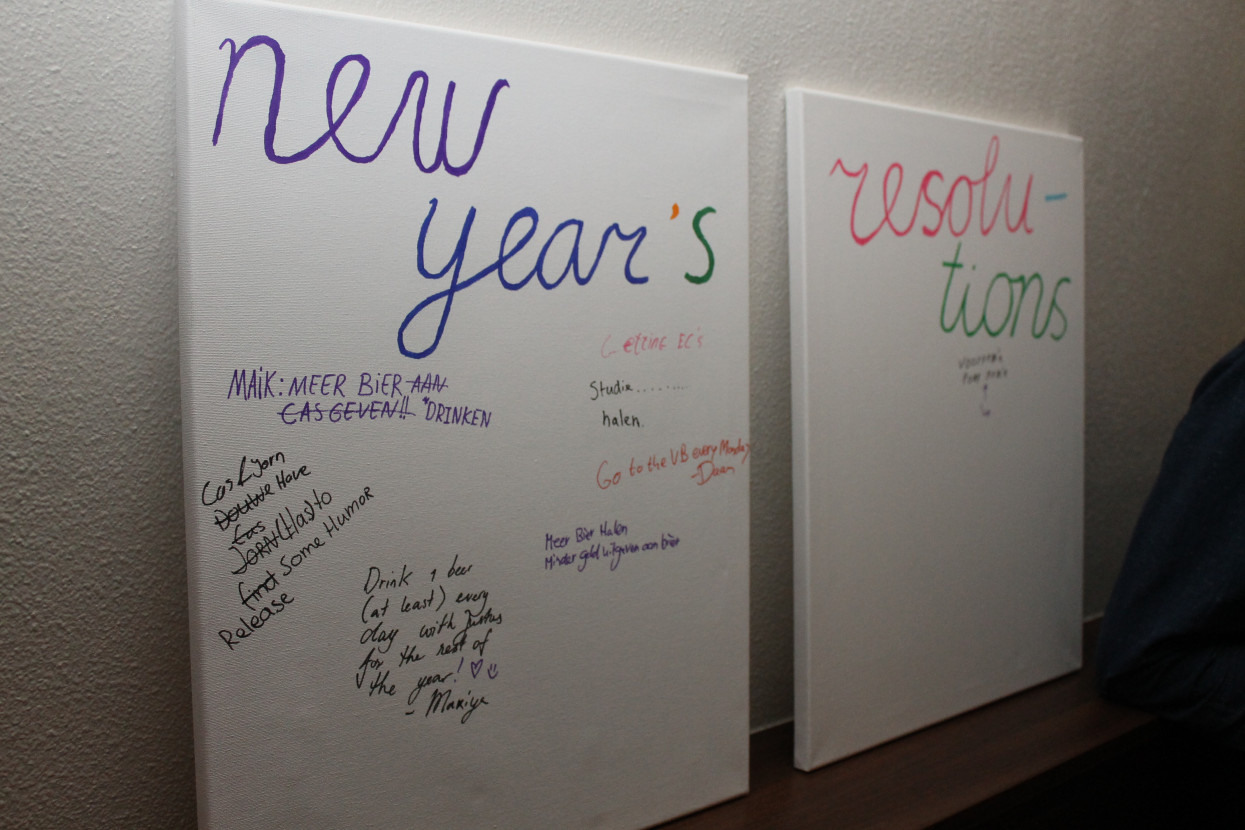 new
year's
MAiK: MEER BiER AAN
CAS GEVEN!! "DRINKEN
Getting EC's
Studie.........
halen.
Go to the VB every Monday
- Daan
Cas & Jorn
Douwe Have
Cas
JORN (Has) to
find Some Humor
Release
Meer Bier Halen
Minder geld uitgeven aan bier
Drink 1 beer
(at least) every
day with Justus
for the rest of
the year! ♡ ☺
- Mariya
resolu-
tions